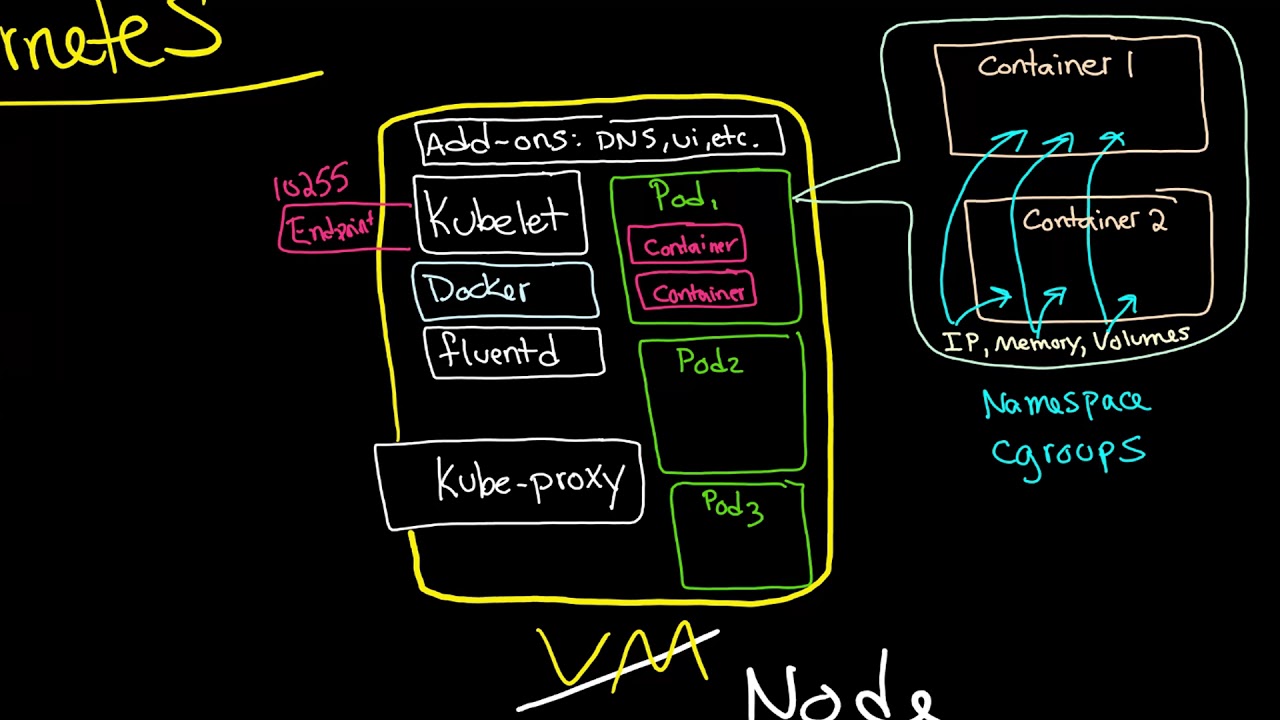 rnetes
Add-ons: DNS, ui, etc.
10255
Endpoint
Kubelet
Docker
fluentd
Kube-proxy
Pod1
Container
Container
Pod2
Pod3
Container 1
Container 2
IP, Memory, Volumes
Namespace
cgroups
VM
Node